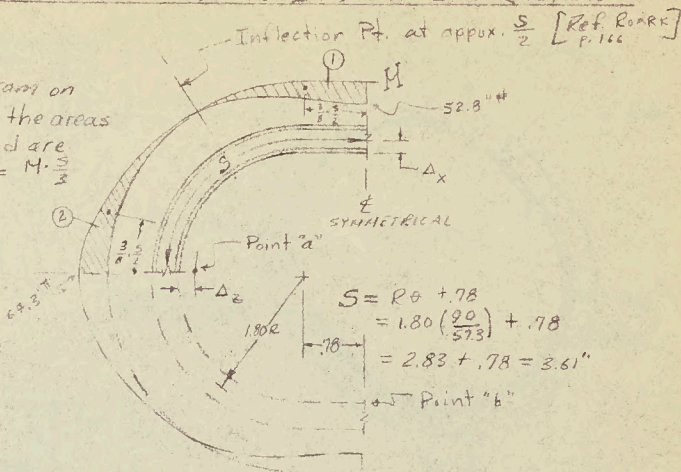 Inflection Pt. at appox. S/2 [Ref. ROARK P. 166]
①
M
am on
the areas
d are
= M·S/3
52.8"#
S
Δx
℄
SYMMETRICAL
②
Point "a"
Δz
1.80R
.78
S = Rθ + .78
= 1.80 (90/57.3) + .78
= 2.83 + .78 = 3.61"
Point "b"